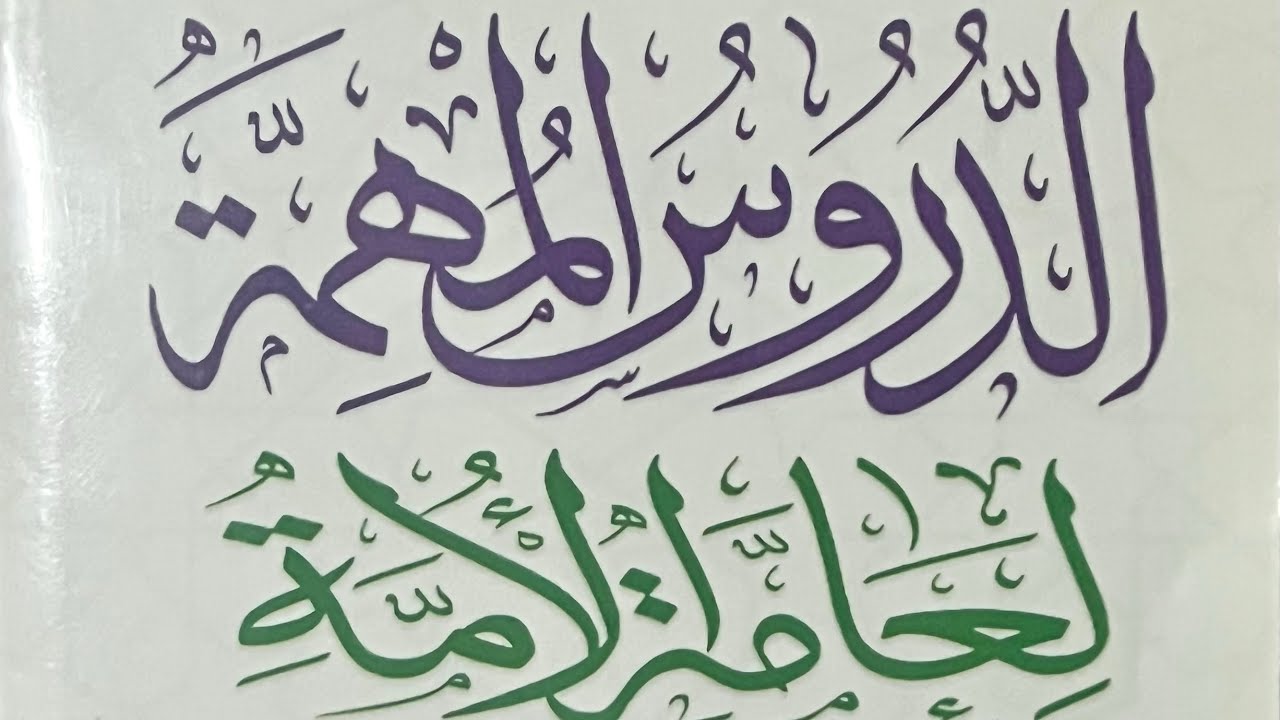 الدُّرُوسُ المُهِمَّةُ
لِعَامَّةِ الأُمَّةِ